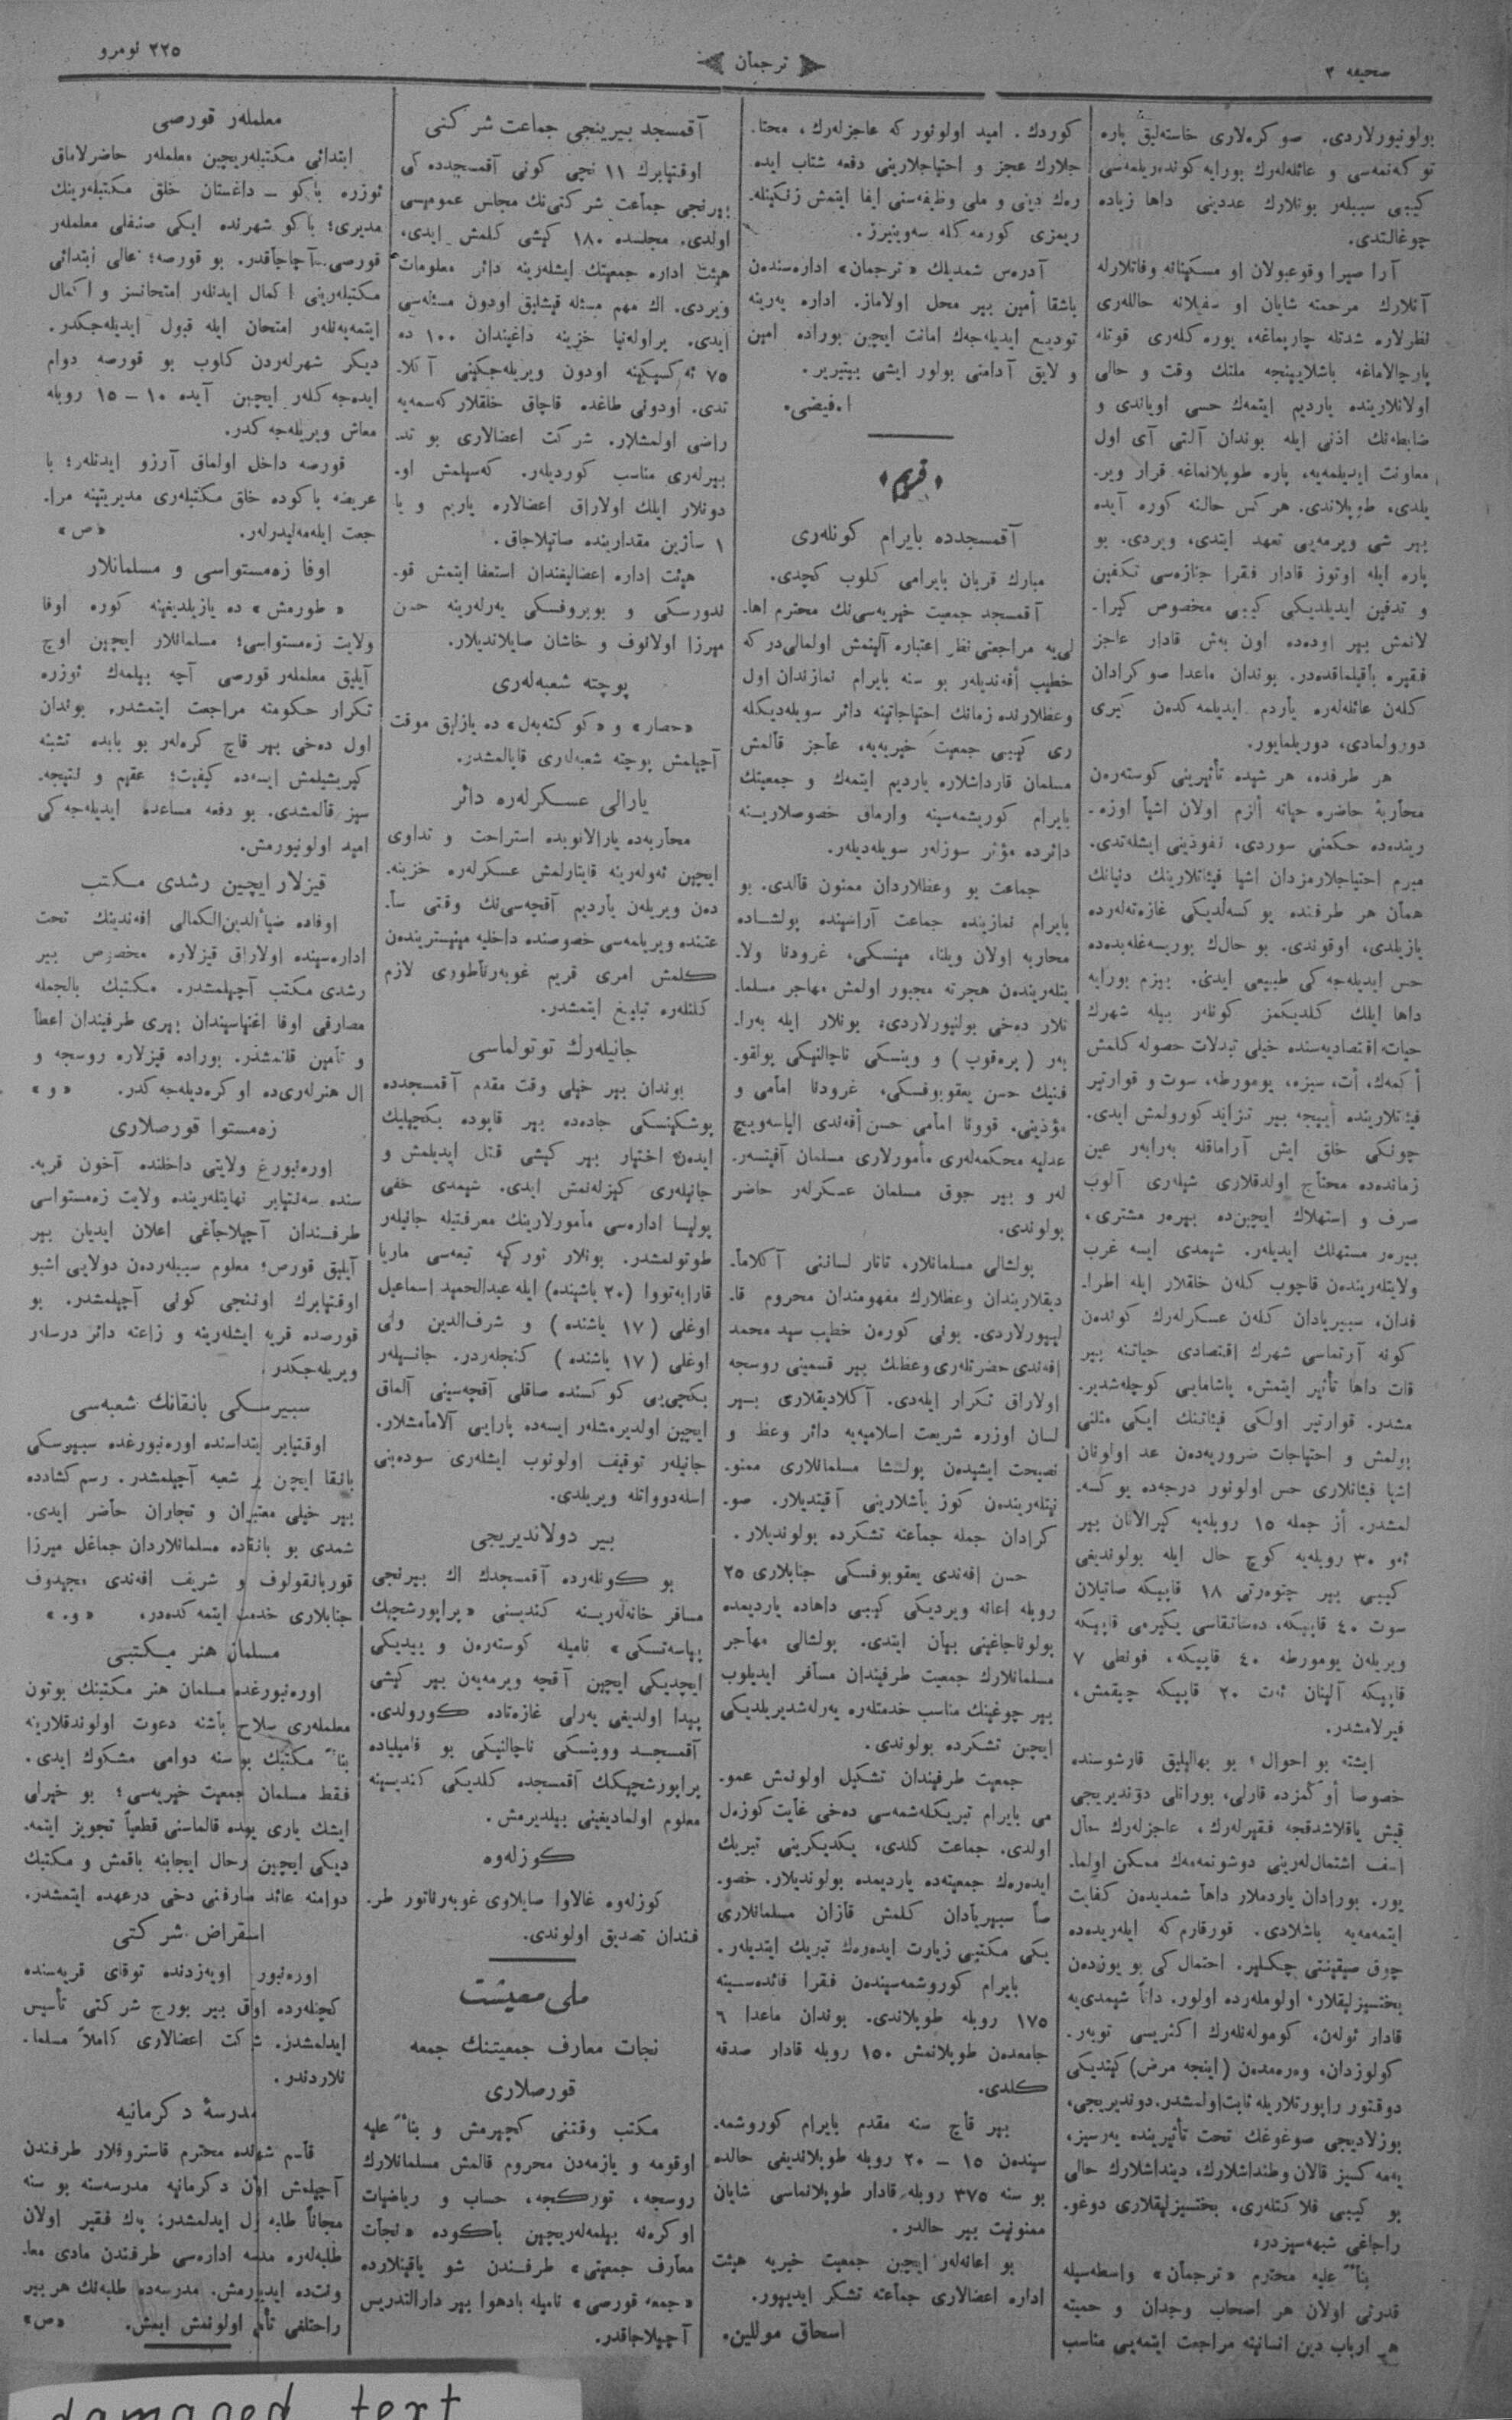 صحیفه ۲
ترجمان
۲۲۵ نومرو
بولونیورلاردی. صوکره‌لاری خاسته‌لیق پاره
توکه‌نمه‌سی و عائله‌له‌رك بورایه کونده‌ریلمه‌سی
کیبی سببلەر بونلارك عددینی داها زیاده
چوغالتدی.
آرا صیرا وقوعبولان او مسکینانه وفاتلارله
آنلارك مرحمته شایان او سفیلانه حاللەری
نظرلاره شدتله چارپماغه، یوره‌کلەری قوتله
پارچالاماغه باشلایینجه ملتك وقت و حالی
اولانلارینده یاردیم ایتمەك حسی اویاندی و
ضابطه‌نك اذنی ایله بوندان آلتی آی اول
معاونت ایدیلمەیه، پاره طوپلانماغه قرار ویر-
یلدی، طوپلاندی. هر کس حالنه کوره آیده
بیر شی ویرمه‌یی تعهد ایتدی، ویردی. بو
پاره ایله اوتوز قادار فقرا جنازه‌سی تکفین
و تدفین ایدیلدیکی کیبی مخصوص کیرا-
لانمش بیر اوده‌ده اون بەش قادار عاجز
فقیره باقیلماقده‌در. بوندان ماعدا صوکرادان
کلەن عائله‌له‌ره یاردم ایدیلمەکدەن گیری
دورولمادی، دوریلمایور.
هر طرفده، هر شیده تأثیرینی کوستەرەن
محاربهٔ حاضره حیاته ألزم اولان اشیا اوزه-
رینده‌ده حکمنی سوردی، نفوذینی ایشله‌تدی.
مبرم احتیاجلارمزدان اشیا فیئاتلارینك دنیانك
همان هر طرفنده یوکسه‌لدیکی غازه‌ته‌لەرده
یازیلدی، اوقوندی. بو حالك بوریسه‌غله‌بده‌ده
حس ایدیله‌جه‌کی طبیعی ایدی. بیزم بورایه
داها ایلك کلدیکمز کونلەر بیله شهرك
حیات اقتصادیه‌سنده خیلی تبدلات حصوله کلمش
أکمەك، أت، سبزه، یومورطه، سوت و قوارتیر
فیئاتلارینده أییجه بیر تزاید کورولمش ایدی.
چونکی خلق ایش آراماقله برابەر عین
زمانده‌ده محتاج اولدقلاری شیلەری آلوب
صرف و استهلاك ایچین‌ده بیرەر مشتری،
بیرەر مستهلك ایدیلەر. شیمدی ایسه غرب
ولایتلەریندەن قاچوب کلەن خلقلار ایله اطرا-
فدان، سیبریادان کلەن عسکرلەرك کوندەن
کونه آرتماسی شهرك اقتصادی حیاتنه بیر
قات داها تأثیر ایتمش، یاشامایی کوچله‌شدیر-
مشدر. قوارتیر اولکی فیئاتنك ایکی مثلنی
بولمش و احتیاجات ضروریه‌دەن عد اولونان
اشیا فیئاتلاری حس اولونور درجه‌ده یوکسه-
لمشدر. أز جمله ۱۵ روبله‌یه کیرالانان بیر
ئەو ۳۰ روبله‌یه کوچ حال ایله بولوندیغی
کیبی بیر چتوەرتی ۱۸ قاپیکه صاتیلان
سوت ۴۰ قاپیکه، ده‌ساتقاسی یکیرمی قاپیکه
ویریلەن یومورطه ۴۰ قاپیکه، فونطی ۷
قاپیکه آلینان ئەت ۲۰ قاپیکه چیقمش،
فیرلامشدر.
ایشته بو احوال، بو بهالیلیق قارشوسنده
خصوصا أوگمزده قارلی، بورانلی دوندیریجی
قیش یاقلاشدقجه فقیرلەرك، عاجزلەرك حال
اسف اشتمال‌لەرینی دوشونمەمەك ممکن اولما-
یور. بورادان یاردملار داها شمدیدەن کفایت
ایتمەمەیه باشلادی. قورقارم که ایلەریده‌ده
چوق صیقینتی چکیلیر. احتمال کی بو یوزدەن
بختسزلیقلار، اولوملەرده اولور. دائا شیمدی‌یه
قادار ئولەن، کومولەنلەرك اکثریسی توبەر-
کولوزدان، وەرەمدەن (اینجه مرض) کیتدیکی
دوقتور راپورتلاریله ثابت اولمشدر. دوندیریجی،
بوزلادیجی صوغوغك تحت تأثیرینده یەرسز،
یەمەکسیز قالان وطنداشلارك، دینداشلارك حالی
بو کیبی فلاکتلەری، بختسزلیقلاری دوغو-
راجاغی شبهه‌سیزدر.
بناءً علیه محترم «ترجمان» واسطه‌سیله
قدرتی اولان هر اصحاب وجدان و حمیته
هر ارباب دین انسانیته مراجعت ایتمەیی مناسب
کوردك. امید اولونور که عاجزلەرك، محتا-
جلارك عجز و احتیاجلارینی دفعه شتاب ایده-
رەك دینی و ملی وظیفه‌سنی ایفا ایتمش زنکینله-
ریمزی کورمەکله سەوینیرز.
آدرەس شمدیلك «ترجمان» اداره‌سندەن
باشقا أمین بیر محل اولاماز. اداره یەرینه
تودیع ایدیله‌جەك امانت ایچین بوراده امین
و لایق آدامنی بولور ایشی بیتیریر.
ا. فیضی.
قریم
آقمسجدده بایرام کونلەری
مبارك قربان بایرامی کلوب کچدی.
آقمسجد جمعیت خیریه‌سی‌نك محترم اها-
لی‌یه مراجعتی نظر اعتباره آلینمش اولمالی‌در که
خطیب أفه‌ندیلەر بو سنه بایرام نمازندان اول
وعظلارنده زمانك احتیاجاتینه دائر سویله‌دیکله-
ری کیبی جمعیت خیریه‌یه، عاجز قالمش
مسلمان قارداشلاره یاردیم ایتمەك و جمعیتك
بایرام کوریشمه‌سینه وارماق خصوصلارینه
دائرده مؤثر سوزلەر سویله‌دیلەر.
جماعت بو وعظلاردان ممنون قالدی. بو
بایرام نمازینده جماعت آراسینده بولشاده
محاربه اولان ویلنا، مینسکی، غرودنا ولا-
یتلەریندەن هجرته مجبور اولمش مهاجر مسلما-
نلار ده‌خی بولنیورلاردی. بونلار ایله بەرا-
بەر (پرەقوب) و وینسکی ناچالنیکی پولقو-
فنیك حسن یعقوبوفسکی، غرودنا امامی و
مؤذینی. قوونا امامی حسن أفه‌ندی الیاسه‌ویچ
عدلیه محکمه‌لەری مأمورلاری مسلمان آفیتسەر-
لەر و بیر چوق مسلمان عسکرلەر حاضر
بولوندی.
بولشالی مسلمانلار، تاتار لساننی آکلاما-
دیقلاریندان وعظلارك مفهومندان محروم قا-
لییورلاردی. بونی کورەن خطیب سید محمد
افه‌ندی حضرتلەری وعظك بیر قسمینی روسجه
اولاراق تکرار ایله‌دی. آکلادیقلاری بیر
لسان اوزره شریعت اسلامیه‌یه دائر وعظ و
نصیحت ایشیدەن بولشا مسلمانلاری ممنو-
نیتلەریندەن کوز یاشلارینی آقیتدیلار. صو-
کرادان جمله جماعته تشکرده بولوندیلار.
حسن افه‌ندی یعقوبوفسکی جنابلاری ۲۵
روبله اعانه ویردیکی کیبی داهاده یاردیمده
بولوناجاغینی بیان ایتدی. بولشالی مهاجر
مسلمانلارك جمعیت طرفیندان مسافر ایدیلوب
بیر چوغینك مناسب خدمتلەره یەرله‌شدیریلدیکی
ایچین تشکرده بولوندی.
جمعیت طرفیندان تشکیل اولونمش عمو-
می بایرام تبریکله‌شمه‌سی ده‌خی غایت کوزەل
اولدی. جماعت کلدی، یکدیکرینی تبریك
ایدەرەك جمعیتەده یاردیمده بولوندیلار. خصو-
صاً سیبریادان کلمش قازان مسلمانلاری
یکی مکتبی زیارت ایدەرەك تبریك ایتدیلەر.
بایرام کوروشمه‌سیندەن فقرا فائده‌سینه
۱۷۵ روبله طوپلاندی. بوندان ماعدا ۶
جامعدەن طوپلانمش ۱۵۰ روبله قادار صدقه
کلدی.
بیر قاچ سنه مقدم بایرام کوروشمه-
سیندەن ۱۵ – ۲۰ روبله طوپلاندیغی حالده
بو سنه ۳۷۵ روبله قادار طوپلانماسی شایان
ممنونیت بیر حالدر.
بو اعانه‌لەر ایچین جمعیت خیریه هیئت
اداره اعضالاری جماعته تشکر ایدییور.
اسحاق موللین.
آقمسجد بیرینجی جماعت شرکتی
اوقتیابرك ۱۱ نچی کونی آقمسجدده کی
بیرنجی جماعت شرکتی‌نك مجلس عمومیسی
اولدی. مجلسده ۱۸۰ کیشی کلمش ایدی،
هیئت اداره جمعیتك ایشلەرینه دائر معلومات
ویردی. اك مهم مسئله قیشلیق اودون مسئله‌سی
ایدی. براوله‌نیا خزینه داغیندان ۱۰۰ ده
۷۵ ئەکسیکینه اودون ویریله‌جکینی آکلا-
تدی. اودونی طاغده قاچاق خلقلار کەسمەیه
راضی اولمشلار. شرکت اعضالاری بو تد-
بیرلەری مناسب کوردیلەر. کەسیلمش او-
دونلار ایلك اولاراق اعضالاره یاریم و یا
۱ ساژین مقدارینده صاتیلاجاق.
هیئت اداره اعضالیغندان استعفا ایتمش قو-
ندورسکی و بوبروفسکی یەرلەرینه حسن
میرزا اولانوف و خاشان صایلاندیلار.
پوچته شعبه‌لەری
«حصار» و «کوکته‌بەل» ده یازلیق موقت
آچیلمش پوچته شعبه‌لەری قاپالمشدر.
یارالی عسکرلەره دائر
محاربه‌ده یارالانوبده استراحت و تداوی
ایچین ئەولەرینه قایتارلمش عسکرلەره خزینه-
دەن ویریلەن یاردیم آقچه‌سی‌نك وقتی سا-
عتنده ویریلمه‌سی خصوصنده داخلیه مینیستریندەن
کلمش امری قریم غوبەرناطوری لازم
کلنلەره تبلیغ ایتمشدر.
جانیلەرك توتولماسی
بوندان بیر خیلی وقت مقدم آقمسجدده
پوشکینسکی جاده‌ده بیر قاپوده بکچیلیك
ایدەن اختیار بیر کیشی قتل ایدیلمش و
جانیلەری کیزلەنمش ایدی. شیمدی خفی
پولیسا اداره‌سی مأمورلارینك معرفتیله جانیلەر
طوتولمشدر. بونلار تورکیه تبعه‌سی ماریا
قارابەتووا (۲۰ یاشینده) ایله عبدالحمید اسماعیل
اوغلی (۱۷ یاشنده) و شرف‌الدین ولی
اوغلی (۱۷ یاشنده) کنجلەردر. جانیلەر
بکچی‌یی کوکسنده صاقلی آقچه‌سینی آلماق
ایچین اولدیرمشلەر ایسه‌ده پارایی آلامامشلار.
جانیلەر توقیف اولونوب ایشلەری سودەبنی
اسله‌دوواتله ویریلدی.
بیر دولاندیریجی
بو کونلەرده آقمسجدك اك بیرنجی
مسافر خانه‌لەرینه کندیسنی «پراپورشچیك
بیاسەتسکی» نامیله کوستەرەن و ییدیکی
ایچدیکی ایچین آقچه ویرمەیەن بیر کیشی
پیدا اولدیغی یەرلی غازه‌تاده کورولدی.
آقمسجد ووینسکی ناچالنیکی بو فامیلیاده
پراپورشچیکك آقمسجده کلدیکی کندیسینه
معلوم اولمادیغینی بیلدیرمش.
کوزلەوه
کوزلەوه غالاوا صایلاوی غوبەرناتور طر-
فندان تصدیق اولوندی.
ملی معیشت
نجات معارف جمعیتنك جمعه
قورصلاری
مکتب وقتنی کچیرمش و بناءً علیه
اوقومه و یازمەدن محروم قالمش مسلمانلارك
روسجه، تورکجه، حساب و ریاضیات
اوکرەنه بیلمه‌لەریچین باکوده «نجات
معارف جمعیتی» طرفندن شو یاقینلارده
«جمعه قورصی» نامیله بادهوا بیر دارالتدریس
آچیلاجاقدر.
معلملەر قورصی
ابتدائی مکتبلەریچین معلملەر حاضرلاماق
ئوزره باکو – داغستان خلق مکتبلەرینك
مدیری؛ باکو شهرنده ایکی صنفلی معلملەر
قورصی آچاجاقدر. بو قورصه؛ عالی ابتدائی
مکتبلەرینی اکمال ایدنلەر امتحانسز و اکمال
ایتمەیەنلەر امتحان ایله قبول ایدیله‌جکدر.
دیکر شهرلەردن کلوب بو قورصه دوام
ایده‌جەکلەر ایچین آیده ۱۰ – ۱۵ روبله
معاش ویریله‌جەکدر.
قورصه داخل اولماق آرزو ایدنلەر؛ با
عریضه باکوده خلق مکتبلەری مدیریتینه مرا-
جعت ایله‌مه‌لیدرلەر. «ص»
اوفا زەمستواسی و مسلمانلار
«طورمش» ده یازیلدیغینه کوره اوفا
ولایت زەمستواسی؛ مسلمانلار ایچین اوچ
آیلیق معلملەر قورصی آچه بیلمەك ئوزره
تکرار حکومته مراجعت ایتمشدر. بوندان
اول ده‌خی بیر قاچ کره‌لەر بو بابده تشبثه
کیریشیلمش ایسه‌ده کیفیت؛ عقیم و نتیجه-
سیز قالمشدی. بو دفعه مساعده ایدیله‌جه‌کی
امید اولونیورمش.
قیزلار ایچین رشدی مکتب
اوفاده ضیاءالدین‌الکمالی افه‌ندینك تحت
اداره‌سینده اولاراق قیزلاره مخصوص بیر
رشدی مکتب آچیلمشدر. مکتبك بالجمله
مصارفی اوفا اغنیاسیندان بیری طرفیندان اعطا
و تأمین قلنمشدر. بوراده قیزلاره روسجه و
ال هنرلەری‌ده اوکره‌دیله‌جه‌کدر. «و»
زەمستوا قورصلاری
اورەنبورغ ولایتی داخلنده آخون قریه-
سنده سەنتیابر نهایتلەرینده ولایت زەمستواسی
طرفندان آچیلاجاغی اعلان ایدیلن بیر
آیلیق قورص؛ معلوم سببلەردەن دولایی اشبو
اوقتیابرك اوننجی کونی آچیلمشدر. بو
قورصده قریه ایشلەرینه و زراعته دائر درسلەر
ویریله‌جکدر.
سیبیرسکی بانقانك شعبه‌سی
اوقتیابر ابتداسنده اورەنبورغده سیبیرسکی
بانقا ایچین بر شعبه آچیلمشدر. رسم کشادده
بیر خیلی معتبران و تجاران حاضر ایدی.
شمدی بو بانقاده مسلمانلاردان جماغل میرزا
قوربانقولوف و شریف افه‌ندی مجهدوف
جنابلاری خدمت ایتمەکده‌در. «و.»
مسلمان هنر مکتبی
اورەنبورغده مسلمان هنر مکتبنك بوتون
معلملەری سلاح باشنه دعوت اولوندقلارینه
بناءً مکتبك بو سنه دوامی مشکوك ایدی.
فقط مسلمان جمعیت خیریه‌سی؛ بو خیرلی
ایشك یاری یولده قالماسنی قطعیاً تجویز ایتمه-
دیکی ایچین درحال ایجابنه باقمش و مکتبك
دوامنه عائد مصارفنی دخی درعهده ایتمشدر.
استقراض شرکتی
اورەنبور اویەزدنده توقای قریه‌سنده
کچنلەرده اوفاق بیر بورج شرکتی تأسیس
ایدلمشدر. شرکت اعضالاری کاملاً مسلما-
نلاردندر.
مدرسهٔ دکرمانیه
قاسم شهرنده محترم قاستروفلار طرفندن
آچیلمش اولان دکرمانیه مدرسه‌سنه بو سنه
مجاناً طلبه قبول ایدلمشدر؛ پەك فقیر اولان
طلبه‌لەره مدرسه اداره‌سی طرفندن مادی معا-
ونت‌ده ایدیلیرمش. مدرسه‌ده طلبه‌نك هر بیر
راحتلغی تأمین اولونمش ایمش. «ص»
damaged text